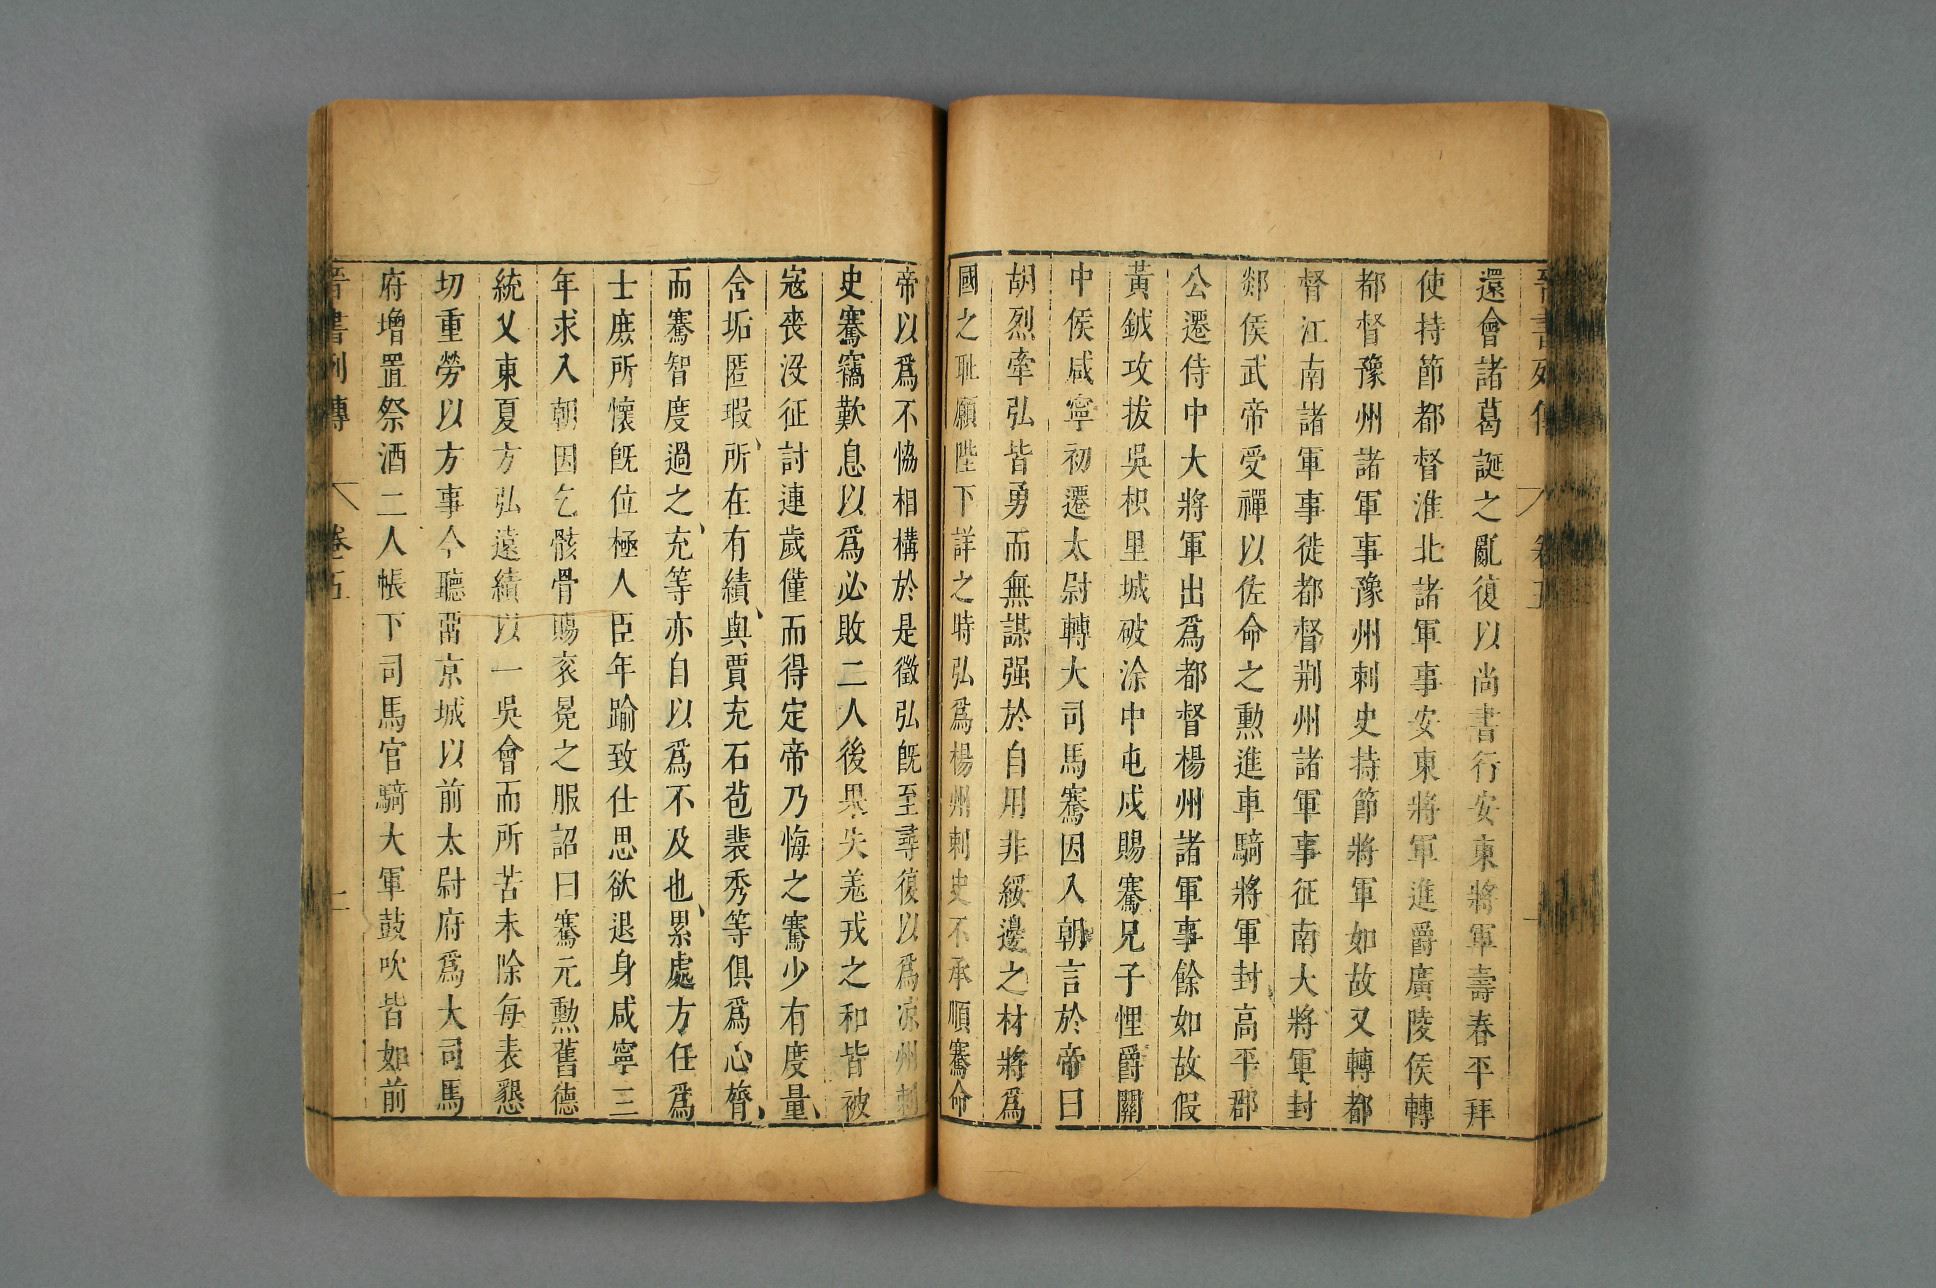 還會諸葛誕之亂復以尚書行安東將軍壽春平拜
使持節都督淮北諸軍事安東將軍進爵廣陵侯轉
都督豫州諸軍事豫州刺史持節將軍如故又轉都
督江南諸軍事徙都督荆州諸軍事征南大將軍封
郯侯武帝受禪以佐命之勲進車騎將軍封高平郡
公遷侍中大將軍出爲都督楊州諸軍事餘如故假
黃鉞攻拔吳枳里城破涂中屯戍賜騫兄子悝爵關
中侯咸寧初遷太尉轉大司馬騫因入朝言於帝曰
胡烈牽弘皆勇而無謀强於自用非綏邊之材將爲
國之恥願陛下詳之時弘爲楊州刺史不承順騫命
帝以爲不恊相構於是徵弘旣至尋復以爲凉州刺
史騫竊歎息以爲必敗二人後果失羗戎之和皆被
宼喪没征討連歲僅而得定帝乃悔之騫少有度量
含垢匿瑕所在有績與賈充石苞裴秀等俱爲心膂
而騫智度過之充等亦自以爲不及也累處方任爲
士庶所懷旣位極人臣年踰致仕思欲退身咸寧三
年求入朝因乞骸骨賜衮冕之服詔曰騫元勲舊德
統乂東夏方弘遠績以一吳會而所苦未除每表懇
切重勞以方事今聽畱京城以前太尉府爲大司馬
府增置祭酒二人帳下司馬官騎大軍鼓吹皆如前
晉書列傳 卷五 二